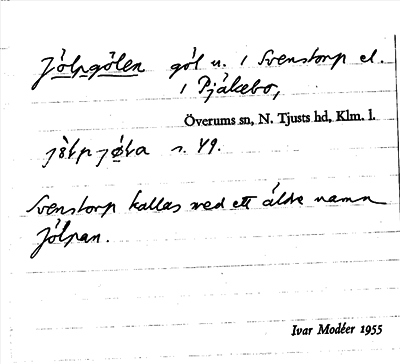 Jölpgölen göl n. i Svenstorp el.
i Pjäkebo,
Överums sn, N. Tjusts hd, Klm. l.
s. 49.
Svenstorp kallas med ett äldre namn
Jölpan.
Ivar Modéer 1955